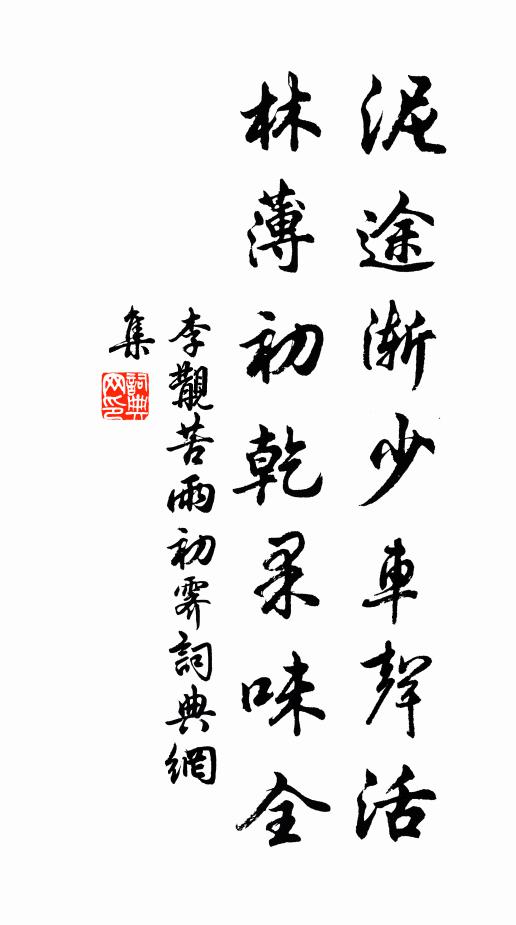 泥途漸少車聲活
林薄初乾果味全
李覯苦雨初霽詞典網
集
詞典
网印